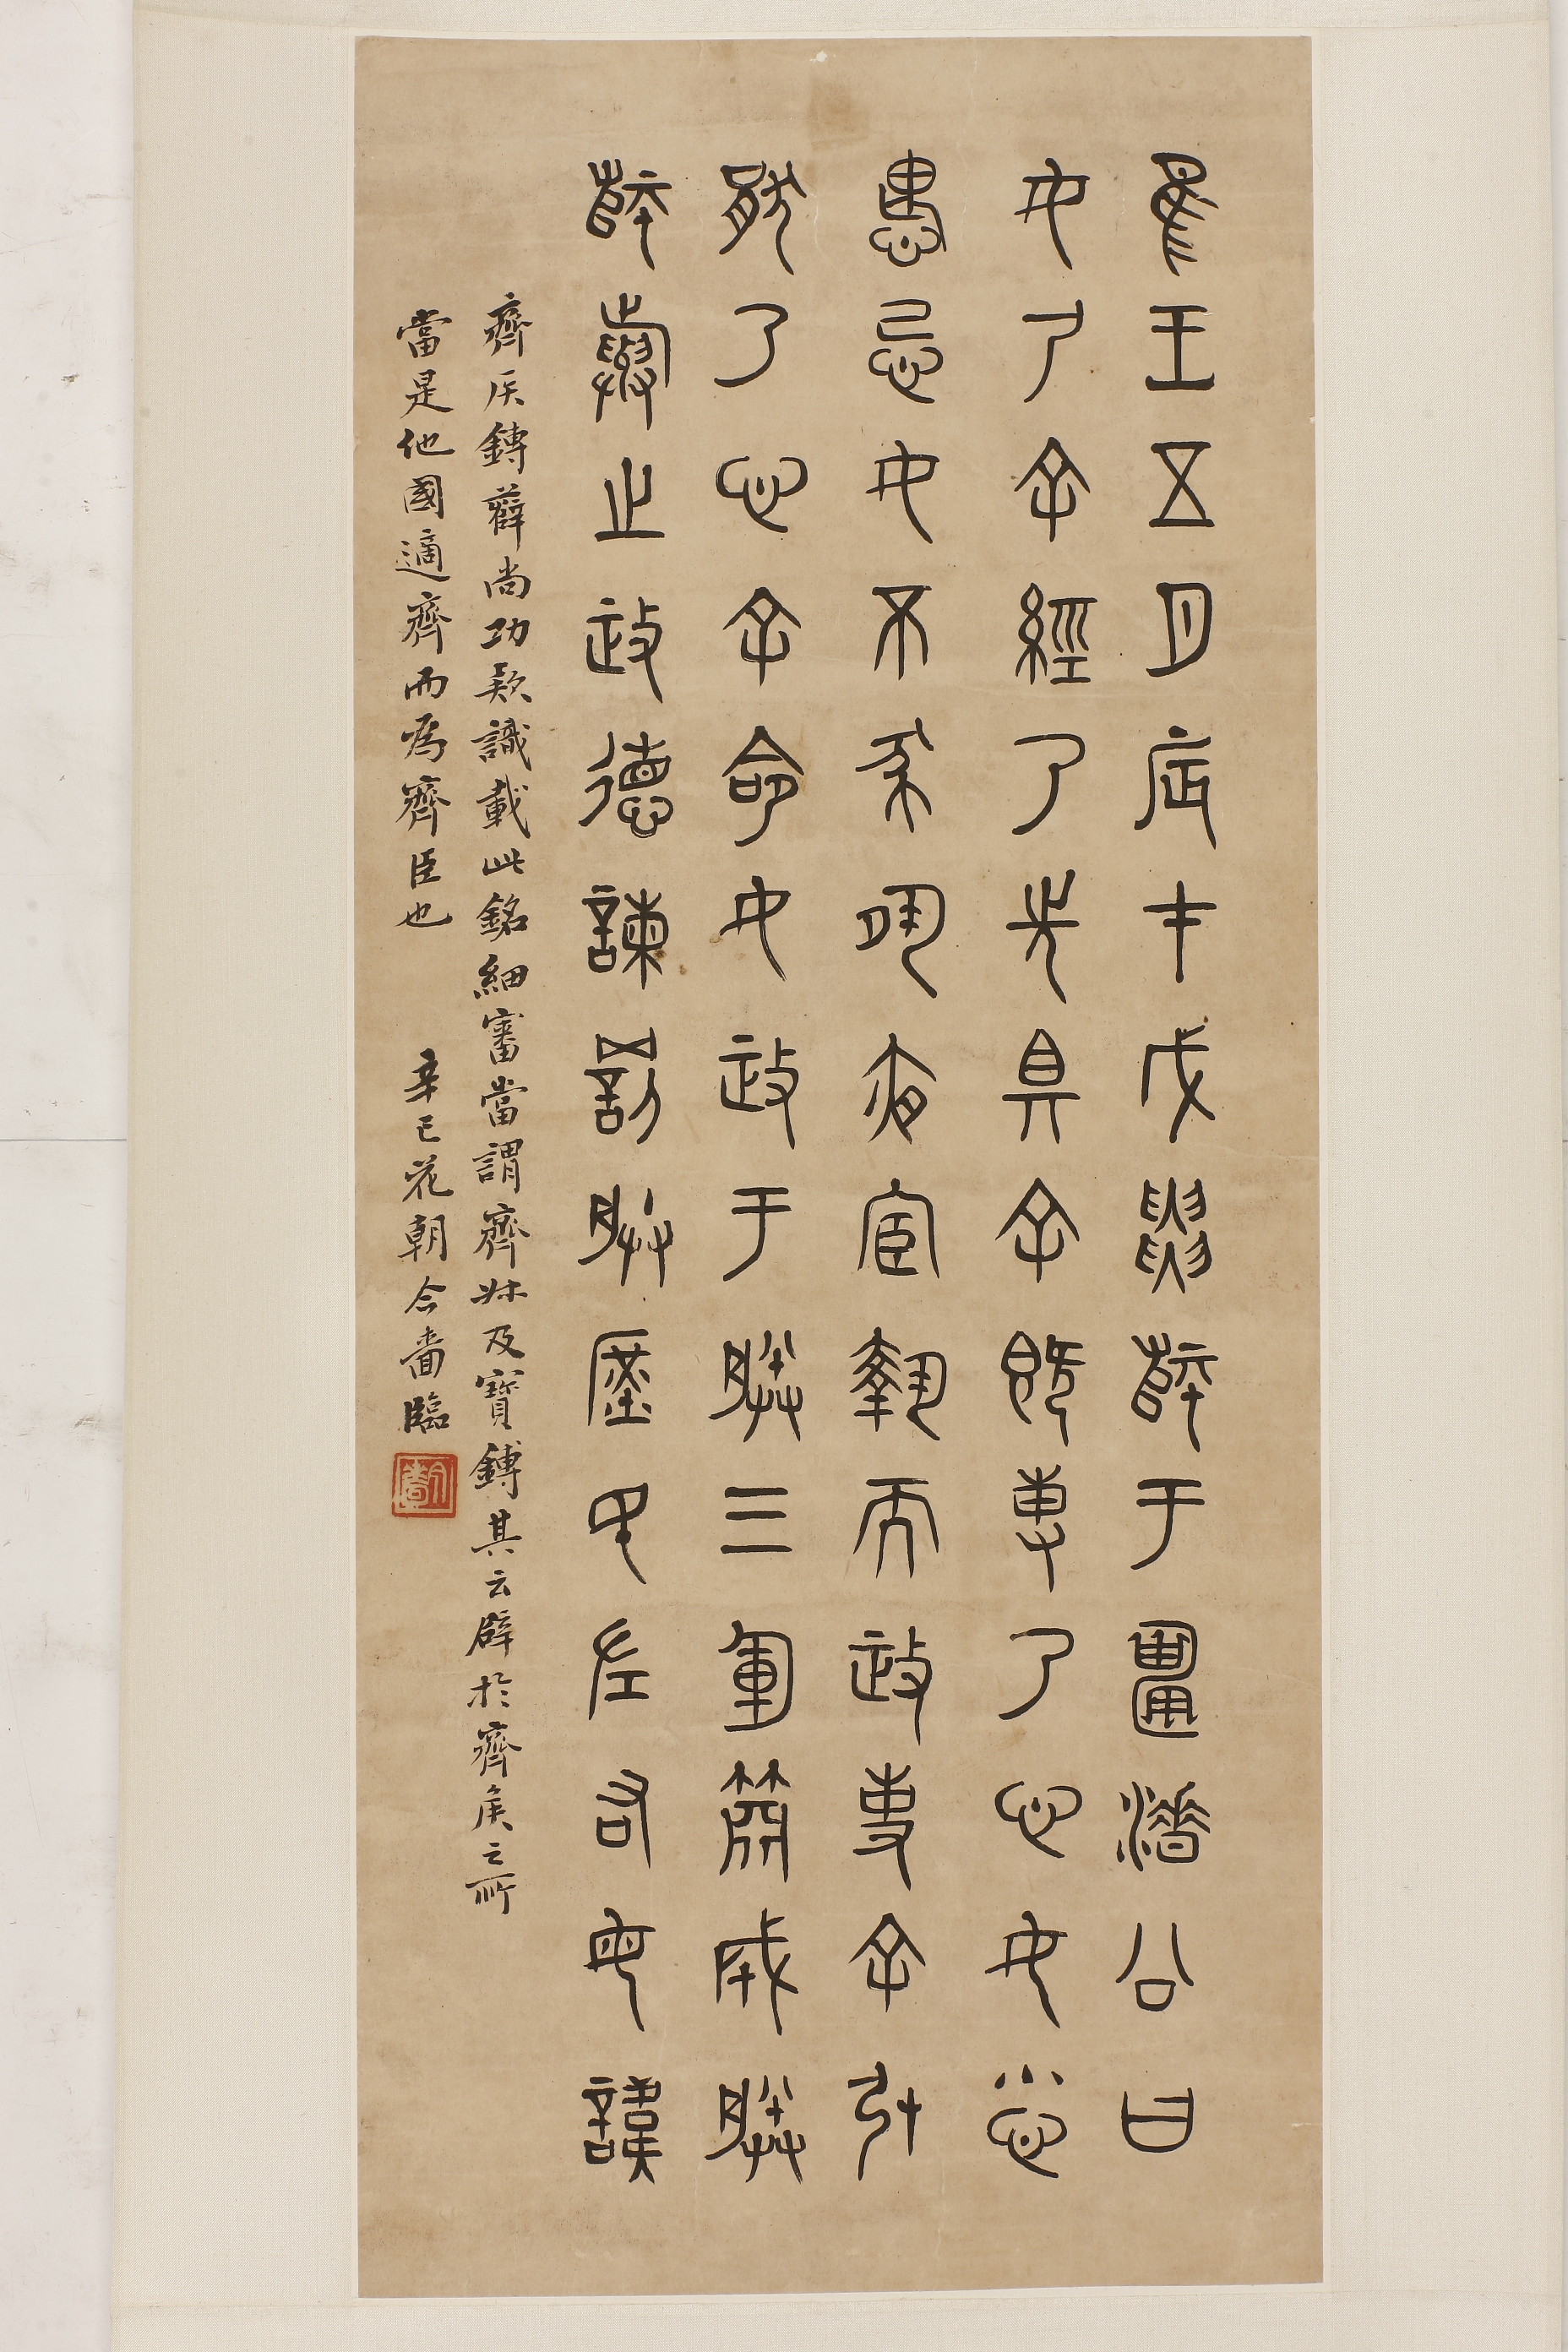 隹王五月辰才戊寅師于淄涶公曰
女尸余經乃先且余既尃乃心女小心
愄忌女不夙夜宦執而政事余引
猒乃心余命女政于朕三軍肅成朕
師旟之政德諫罰朕庶民左右毋諱
齊侯鎛薛尚功款識載此銘細審當謂齊尗及寶鎛其云辟於齊侯之所
當是他國適齊而為齊臣也 辛巳花朝嗇臨